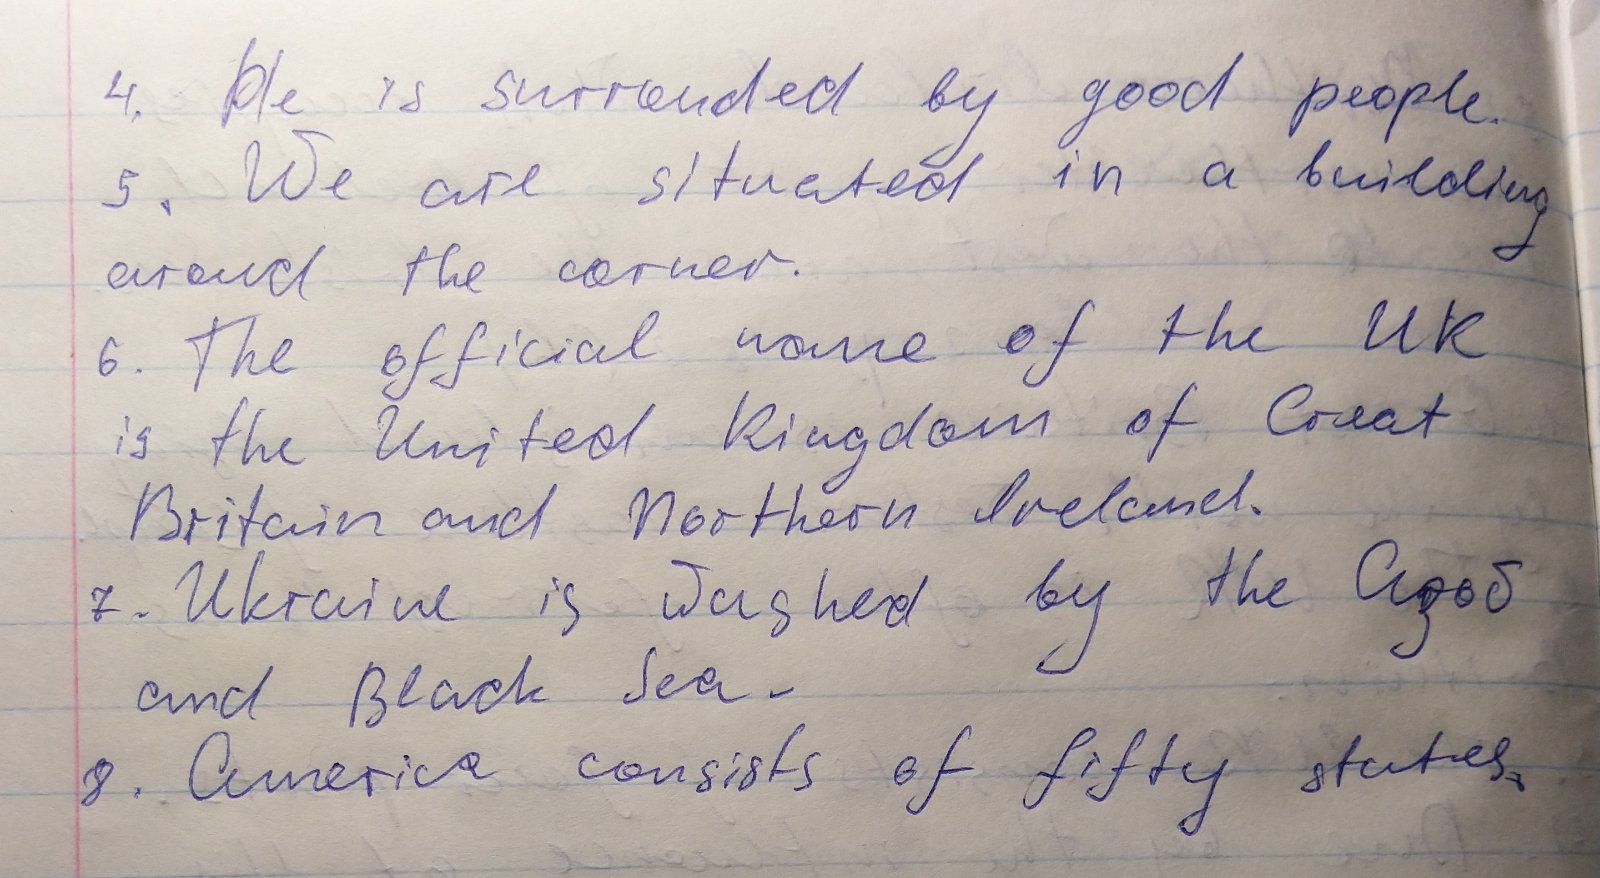 4. He is surrouded by good people.
5. We are situated in a building
aroud the corner.
6. The official name of the UK
is the United Kingdom of Great
Britain and Northern Ireland.
7. Ukraine is washed by the
and Black Sea.
8. America consists of fifty states.